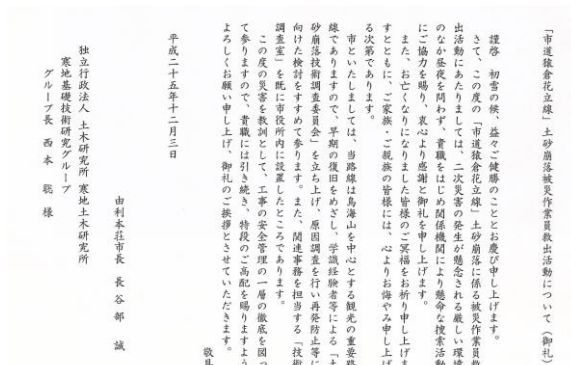 「市道猿倉花立線」土砂崩落被災作業員救出活動について（御礼）
謹啓　初雪の候、益々ご健勝のこととお慶び申し上げます。
さて、この度の「市道猿倉花立線」土砂崩落に係る被災作業員救
出活動にあたりましては、二次災害の発生が懸念される厳しい環境
のなか昼夜を問わず、貴職をはじめ関係機関により懸命な捜索活動
にご協力を賜り、衷心より感謝と御礼を申し上げます。
また、お亡くなりになりました皆様のご冥福をお祈り申し上げま
すとともに、ご家族・ご親族の皆様には、心よりお悔やみ申し上げ
る次第であります。
市といたしましては、当路線は鳥海山を中心とする観光の重要路
線でありますので、早期の復旧をめざし、学識経験者等による「土
砂崩落技術調査委員会」を立ち上げ、原因調査を行い再発防止等に
向けた検討をすすめて参ります。また、関連事務を担当する「技術
調査室」を既に市役所内に設置したところであります。
この度の災害を教訓として、工事の安全管理の一層の徹底を図っ
て参りますので、貴職には引き続き、特段のご高配を賜りますよう
よろしくお願い申し上げ、御礼のご挨拶とさせていただきます。
敬具
平成二十五年十二月三日
由利本荘市長　長谷部　誠
独立行政法人　土木研究所　寒地土木研究所
寒地基礎技術研究グループ
グループ長　西本　聡　様